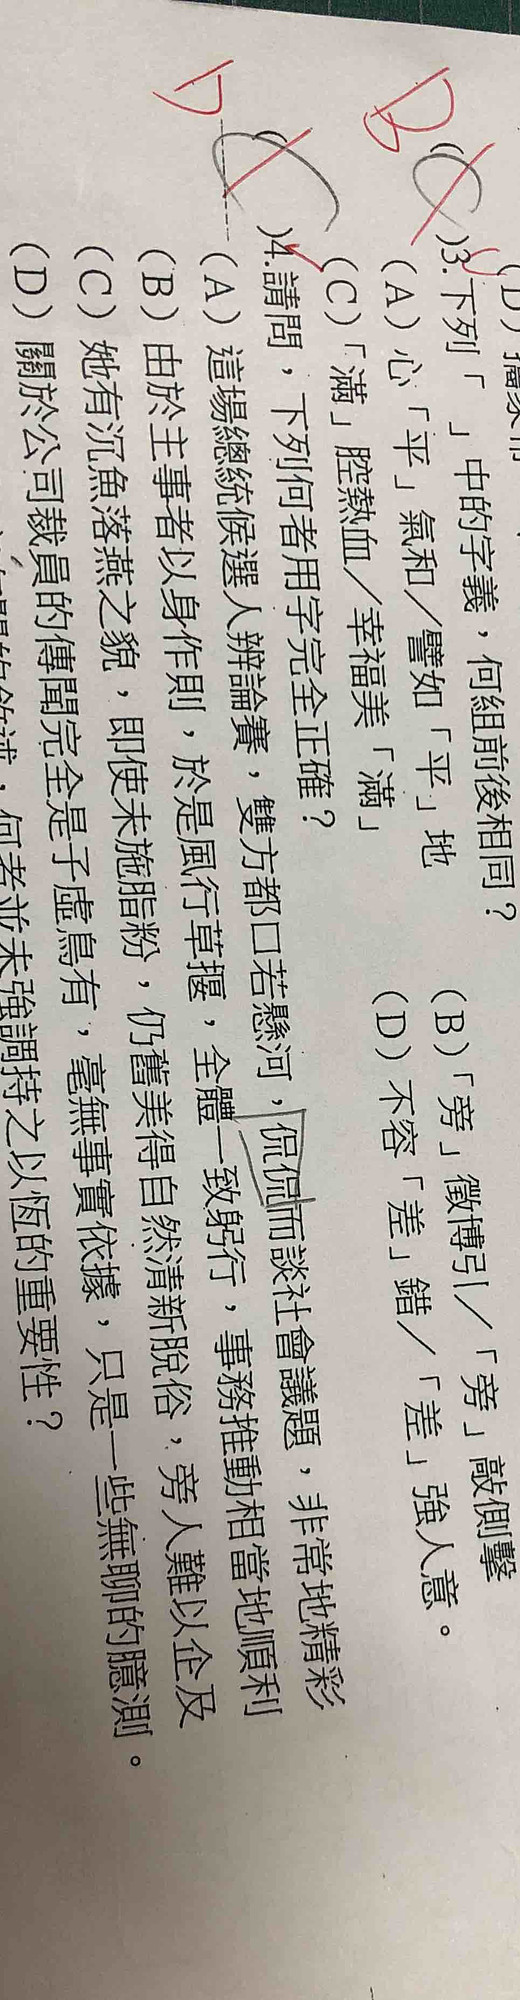 (D)
B )3.下列「　」中的字義，何組前後相同？
(A) 心「平」氣和／譬如「平」地　(B)「旁」徵博引／「旁」敲側擊
(C)「滿」腔熱血／幸福美「滿」　(D) 不容「差」錯／「差」強人意。
D )4.請問，下列何者用字完全正確？
(A) 這場總統候選人辨論賽，雙方都口若懸河，侃侃而談社會議題，非常地精彩
(B) 由於主事者以身作則，於是風行草揠，全體一致躬行，事務推動相當地順利
(C) 她有沉魚落燕之貌，即使未施脂粉，仍舊美得自然清新脫俗，旁人難以企及
(D) 關於公司裁員的傳聞完全是子虛烏有，毫無事實依據，只是一些無聊的臆測。
的敘述，何者並未強調持之以恆的重要性？